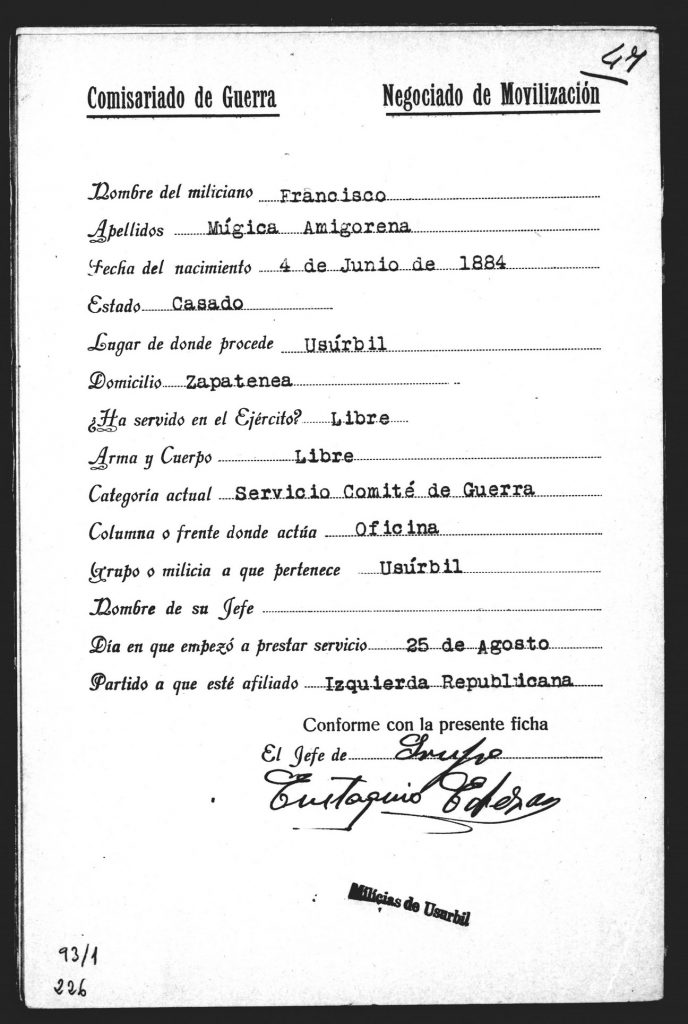 47
Comisariado de Guerra Negociado de Movilización
Nombre del miliciano Francisco
Apellidos Múgica Amigorena
Fecha del nacimiento 4 de Junio de 1884
Estado Casado
Lugar de donde procede Usúrbil
Domicilio Zapatenea
¿Ha servido en el Ejército? Libre
Arma y Cuerpo Libre
Categoría actual Servicio Comité de Guerra
Columna o frente donde actúa Oficina
Grupo o milicia a que pertenece Usúrbil
Nombre de su Jefe
Día en que empezó a prestar servicio 25 de Agosto
Partido a que esté afiliado Izquierda Republicana
Conforme con la presente ficha
El Jefe de Grupo
Eustaquio
Milicias de Usurbil
93/1
226